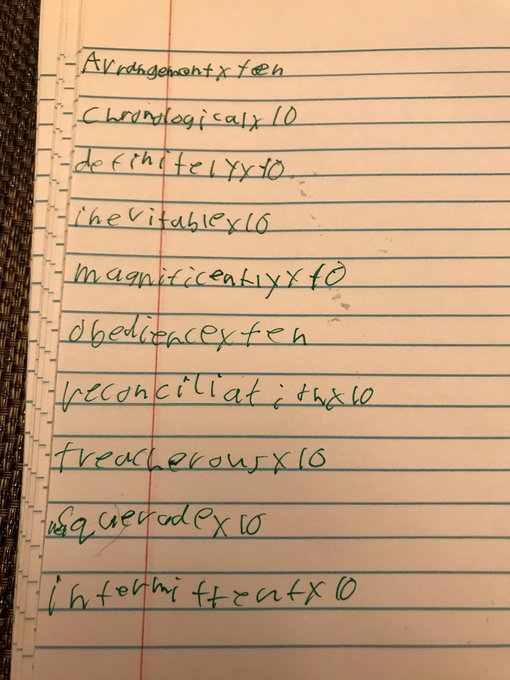 Arrangement x ten
Chronological x 10
definitely x 10
inevitable x 10
magnificently x 10
obedience x ten
reconciliation x 10
treacherous x 10
masquerade x 10
intermittent x 10